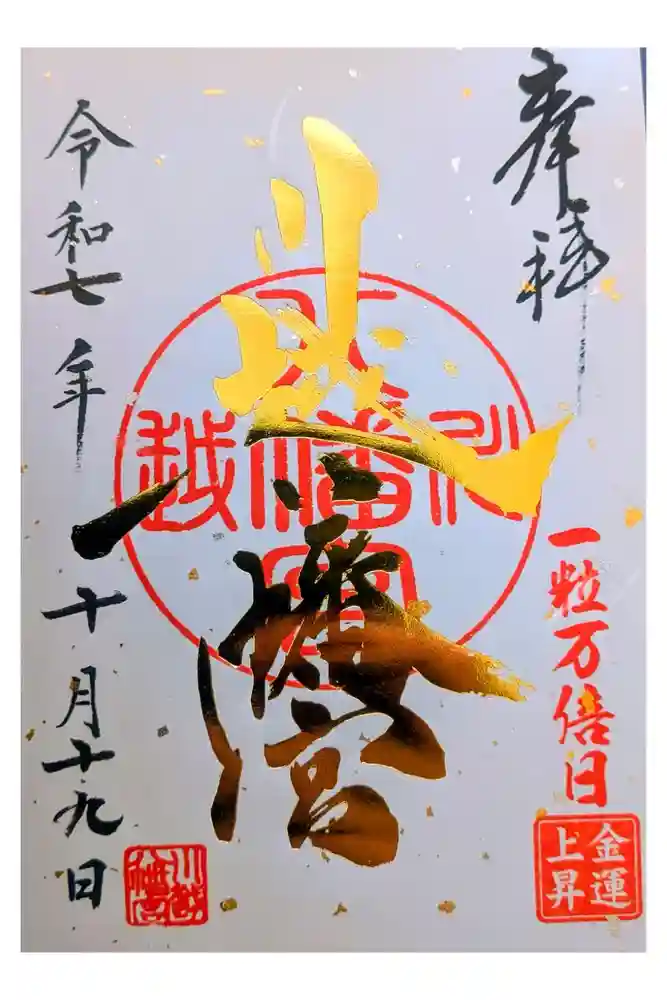 奉拝
一粒万倍日
金運
上昇
川越八幡宮
川越八幡宮
令和七年十月十九日
川越
八幡宮